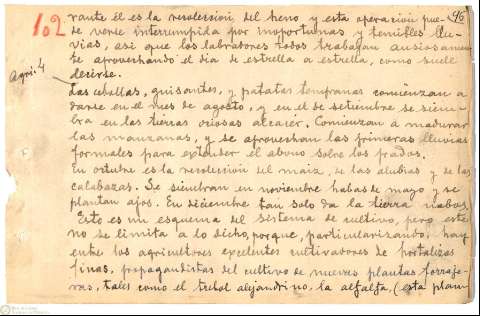 102
96
rante él es la recolección del heno y esta operación pue-
de verse interrumpida por inoportunas y temibles llu-
vias, así que los labradores todos trabajan ansiosamen-
te aprovechando el día de estrella a estrella, como suele
decirse.
Agri. 4
Las cebollas, guisantes, y patatas tempranas comienzan a
darse en el mes de agosto, y en el de setiembre se siem-
bra en las tierras ociosas alcacer. Comienzan a madurar
las manzanas, y se aprovechan las primeras lluvias
formales para extender el abono sobre los prados.
En octubre es la recolección del maiz, de las alubias y de las
calabazas. Se siembran en noviembre habas de mayo y se
plantan ajos. En diciembre tan solo da la tierra nabos.
Esto es un esquema del sistema de cultivo, pero este
no se limita a lo dicho, porque, particularizando, hay
entre los agricultores excelentes cultivadores de hortalizas
finas, propagandistas del cultivo de nuevas plantas forraje-
ras, tales como el trébol alejandrino, la alfalfa, (esta plan-